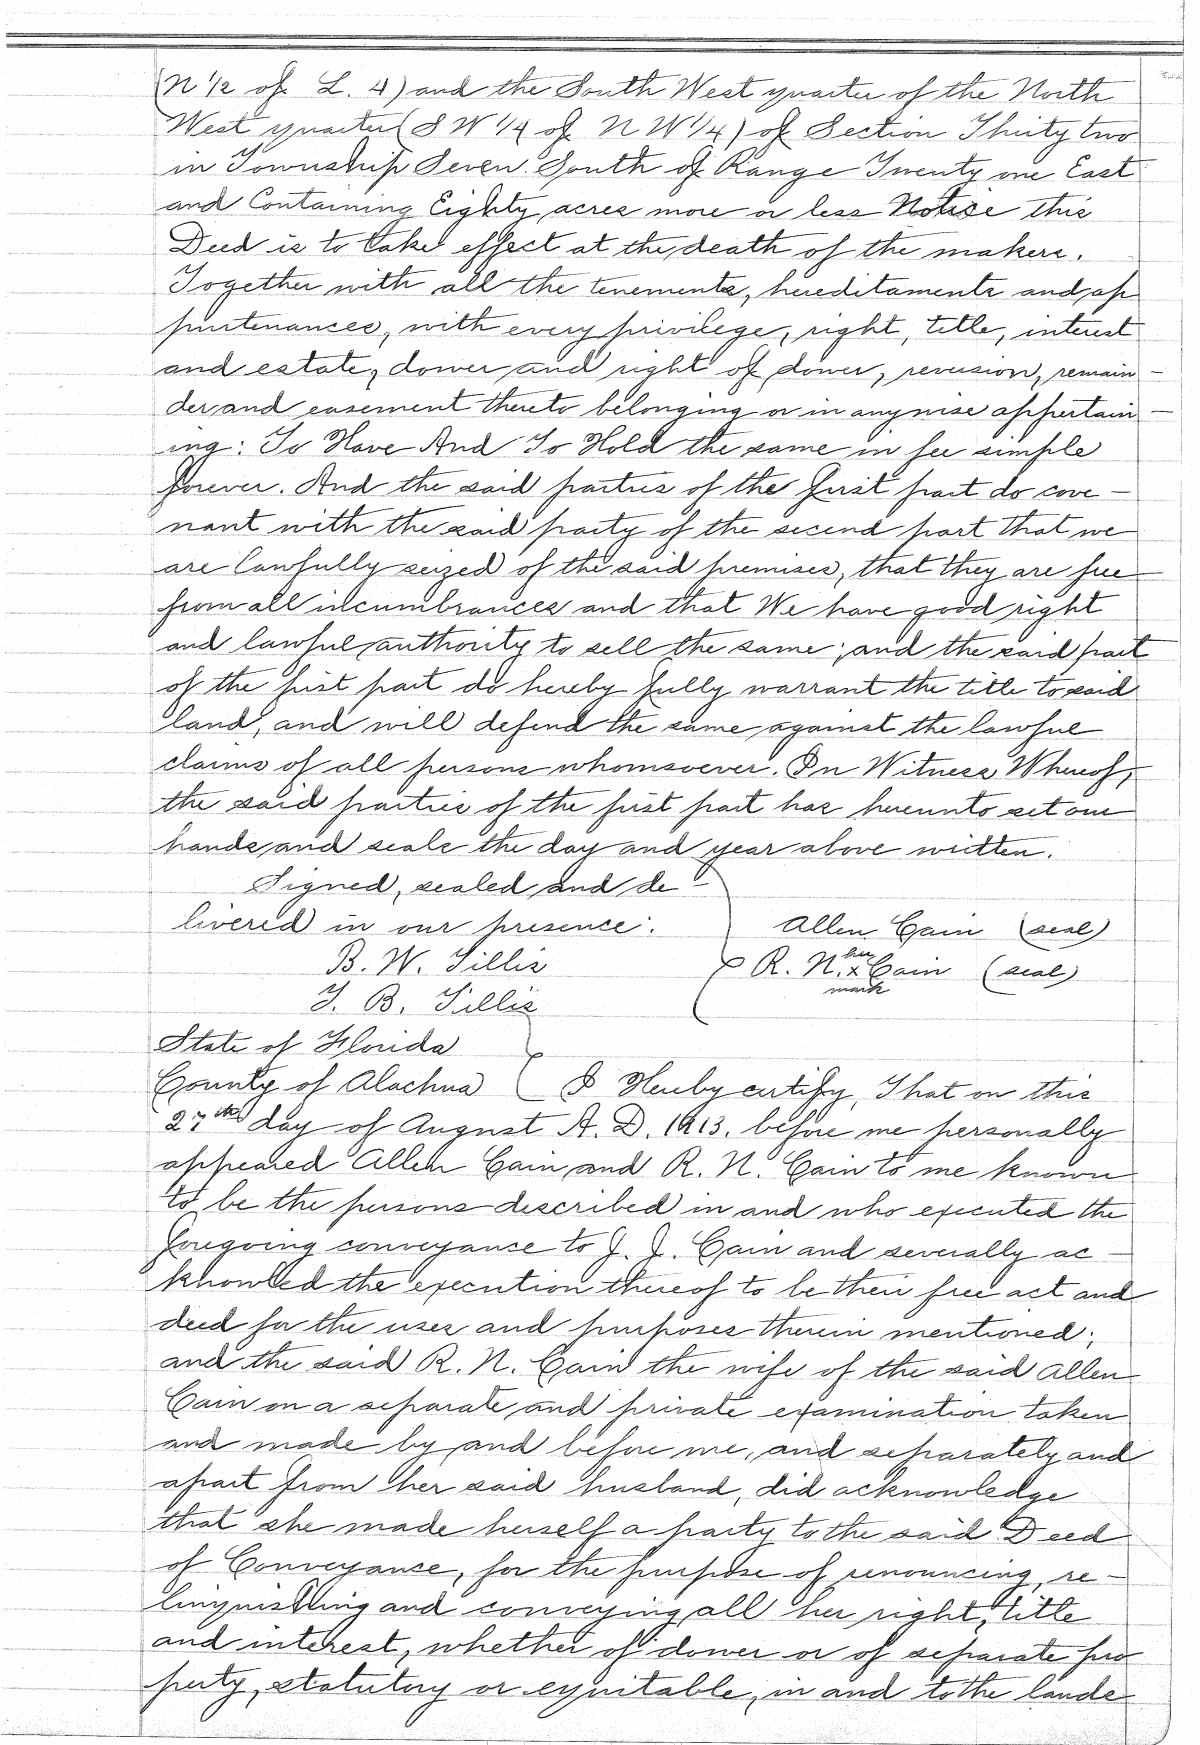 (N 1/2 of L. 4) and the South West quarter of the North
West quarter (S W 1/4 of N W 1/4) of Section Thirty two
in Township Seven South of Range Twenty one East
and Containing Eighty acres more or less Notice this
Deed is to take effect at the death of the makers.
Together with all the tenements, hereditaments and ap
purtenances, with every privilege, right, title, interest
and estate, dower and right of dower, reversion, remain-
der and easement thereto belonging or in anywise appertain-
ing: To Have And To Hold the same in fee simple
forever. And the said parties of the first part do cove-
nant with the said party of the second part that we
are lawfully seized of the said premises, that they are free
from all incumbrances and that We have good right
and lawful authority to sell the same; and the said part
of the first part do hereby fully warrant the title to said
land, and will defend the same against the lawful
claims of all persons whomsoever. In Witness Whereof,
the said parties of the first part has hereunto set our
hands and seals the day and year above written.
Signed, sealed and de-
livered in our presence:
Allen Cain (seal)
B. W. Tillis
R. N. her x mark Cain (seal)
T. B. Tillis
State of Florida
County of Alachua I Hereby certify, That on this
27th day of August A. D. 1913. before me personally
appeared Allen Cain and R. N. Cain to me known
to be the persons described in and who executed the
foregoing conveyance to J. J. Cain and severally ac-
knowled the execution thereof to be their free act and
deed for the uses and purposes therein mentioned;
and the said R. N. Cain the wife of the said Allen
Cain on a separate and private examination taken
and made by and before me, and separately and
apart from her said husband, did acknowledge
that she made herself a party to the said Deed
of Conveyance, for the purpose of renouncing, re-
linquishing and conveying all her right, title
and interest, whether of dower or of separate pro
perty, statutory or equitable, in and to the lands